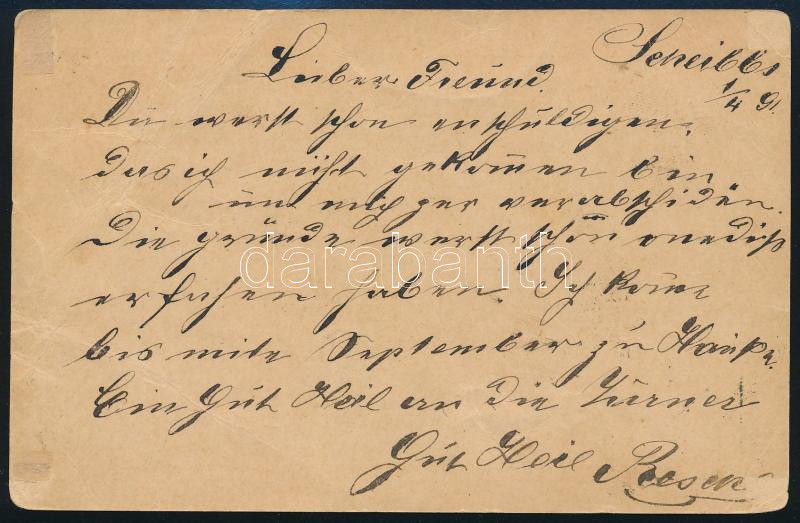 Scheibbs
1/4 91.
Lieber Freund.
Du werst schon enschuldigen,
das ich nicht gekommen bin
um mich zer verabschiden.
Die gründe werst schon onediß
erfahren haben. Ich komme
bis mite September zu Hause.
Ein Gut Heil an die Turner
Gut Heil
darabanth